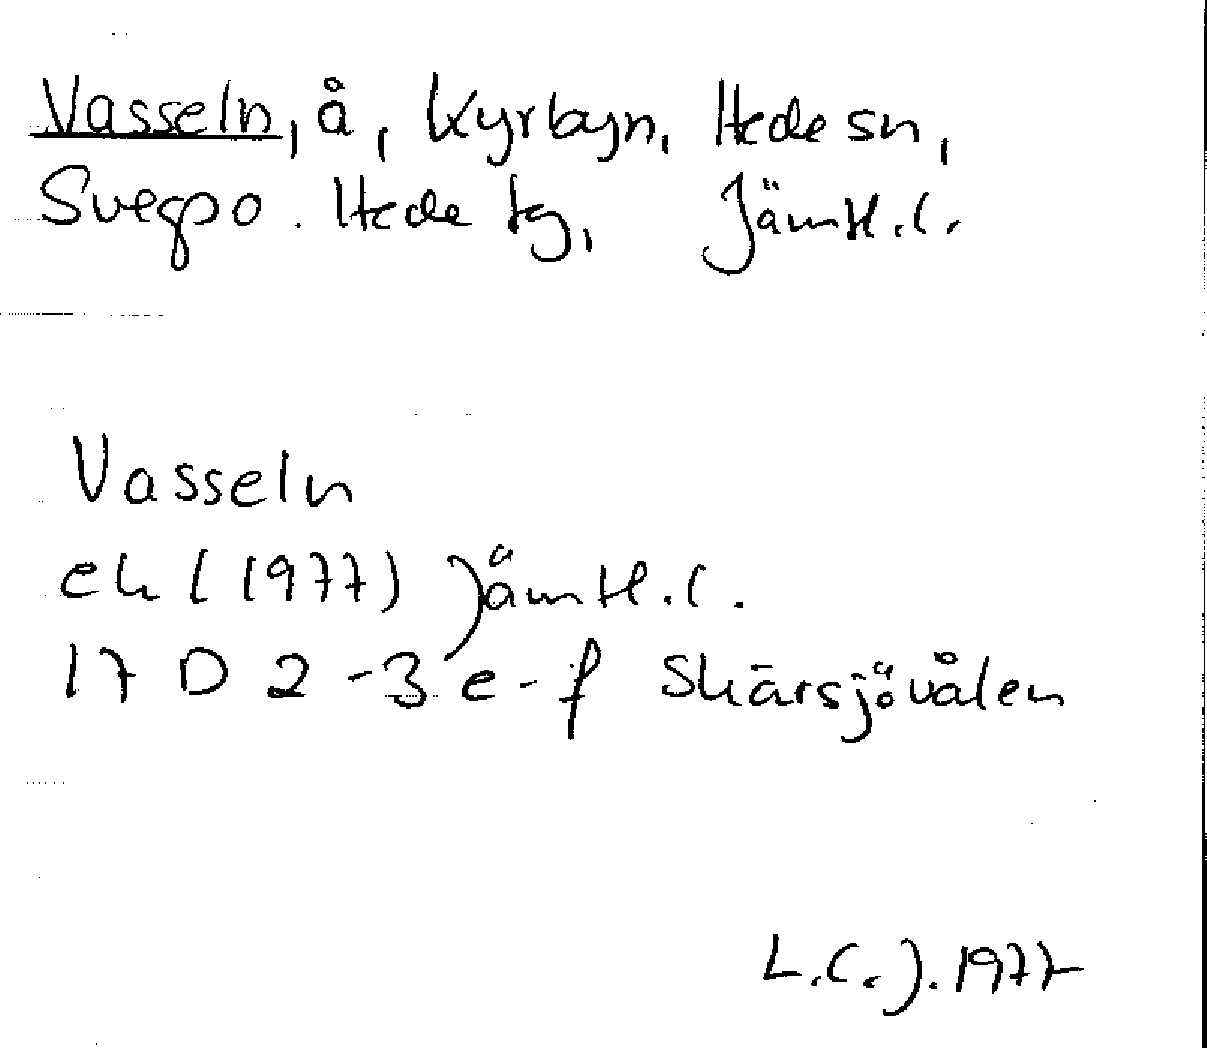 Vasseln, å, Kyrbyn, Hede sn,
Svegpo. Hede tg, Jämtl.l.
Vasseln
ek (1977) Jämtl.l.
17 D 2-3 e-f Skärsjövålen
L.C.J. 1977